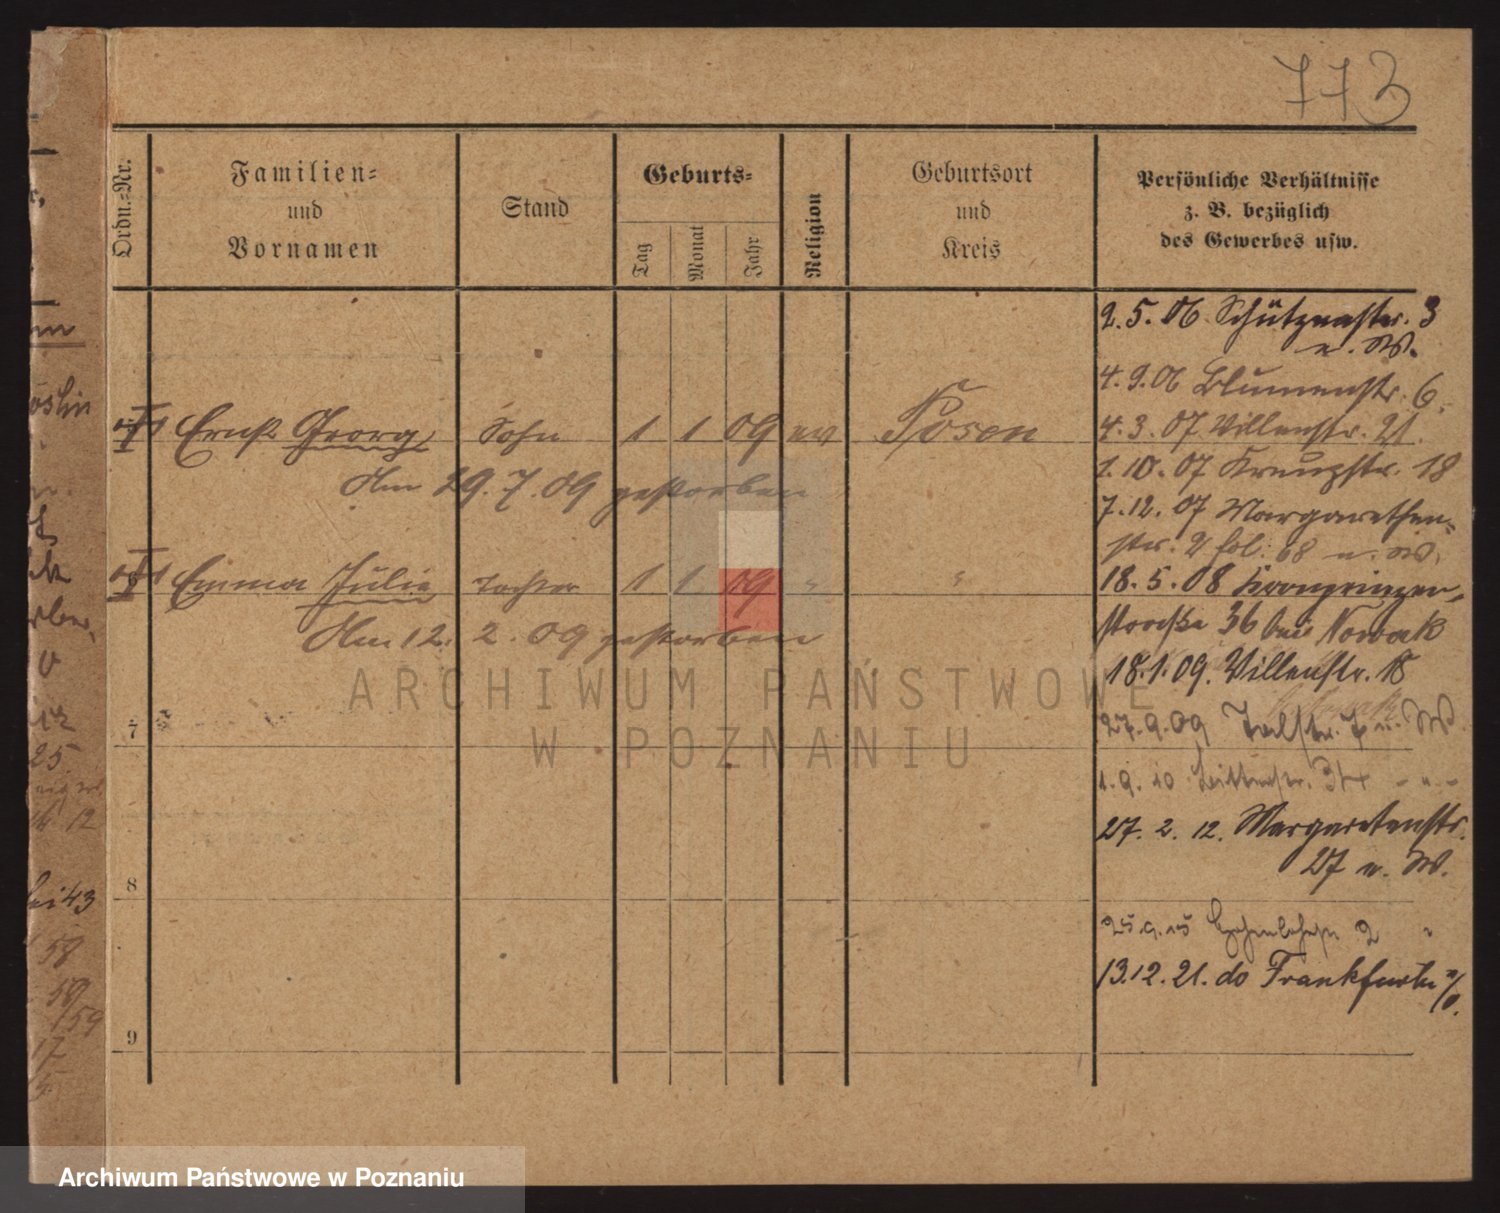 773
Ordn.-Nr.
Familien-
und
Vornamen
Stand
Geburts-
Tag
Monat
Jahr
Religion
Geburtsort
und
Kreis
Persönliche Verhältnisse
z. B. bezüglich
des Gewerbes usw.
2.5.06 Schützenstr. 3
u. W.
4.9.06 Blumenstr. 6.
Ernst Georg, Sohn 1 1 09 ev Posen
4.3.07 Villenstr. 21.
1.10.07 Kreuzstr. 18
Am 29.7.09 gestorben
7.12.07 Margarethen-
str. 21 bei 68 u. W.
Emma Julie Tochter 1 1 09 " "
18.5.08 Kronprinzen-
straße 36 bei Nowak
Am 12. 2. 09 gestorben
18.1.09. Villenstr. 18
27.9.09 Talstr. 7 u. W.
7
1.9.10 34 - " -
27. 2. 12. Margaretenstr.
27 u. W.
8
25.9.15 2 "
13.12.21. do Frankfurt a/O.
9
25
12
43
58
59
159
17
ARCHIWUM PAŃSTWOWE
W POZNANIU
Archiwum Państwowe w Poznaniu